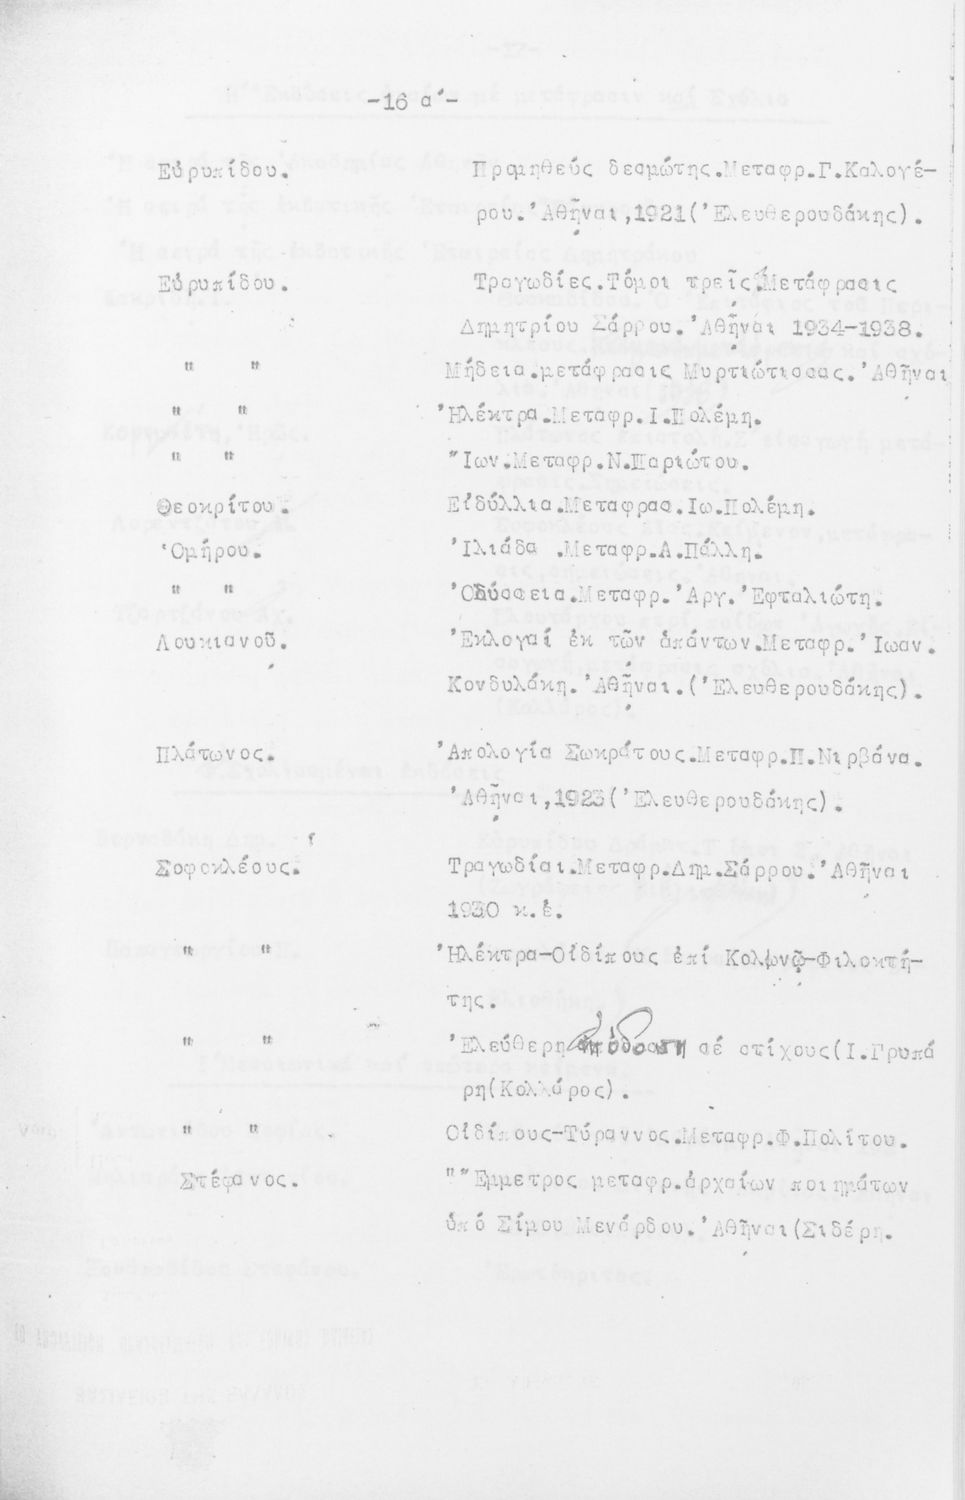 -16 α´-
Εὐριπίδου. Προμηθεύς δεσμώτης.Μεταφρ.Γ.Καλογέ-
ρου.Ἀθῆναι,1921(Ἐλευθερουδάκης).
Εὐριπίδου. Τραγωδίες.Τόμοι τρεῖς.Μετάφρασις
Δημητρίου Σάρρου.Ἀθῆναι 1934-1938.
" " Μήδεια.μετάφρασις Μυρτιώτισσας.Ἀθῆναι
" " Ἠλέκτρα.Μεταφρ.Ι.Πολέμη.
" " Ἴων.Μεταφρ.Ν.Παριώτου.
Θεοκρίτου. Εἰδύλλια.Μεταφρασ.Ιω.Πολέμη.
Ὁμήρου. Ἰλιάδα .Μεταφρ.Α.Πάλλη.
" " Ὀδύσσεια.Μεταφρ.Ἀργ.Ἐφταλιώτη.
Λουκιανοῦ. Ἐκλογαί ἐκ τῶν ἁπάντων.Μεταφρ.Ἰωαν.
Κονδυλάκη.Ἀθῆναι.(Ἐλευθερουδάκης).
Πλάτωνος. Ἀπολογία Σωκράτους.Μεταφρ.Π.Νιρβάνα.
Ἀθῆναι,1923(Ἐλευθερουδάκης).
Σοφοκλέους. Τραγωδίαι.Μεταφρ.Δημ.Σάρρου.Ἀθῆναι
1930 κ.ἑ.
" " Ἠλέκτρα-Οἰδίπους ἐπί Κολωνῷ-Φιλοκτή-
της.
" " Ἐλεύθερη ἀπόδοση σέ στίχους(Ι.Γρυπά
ρη(Κολλάρος).
" " Οἰδίπους-Τύραννος.Μεταφρ.Φ.Πολίτου.
Στέφανος. "Ἔμμετρος μεταφρ.ἀρχαίων ποιημάτων
ὑπό Σίμου Μενάρδου.Ἀθῆναι(Σιδέρη.